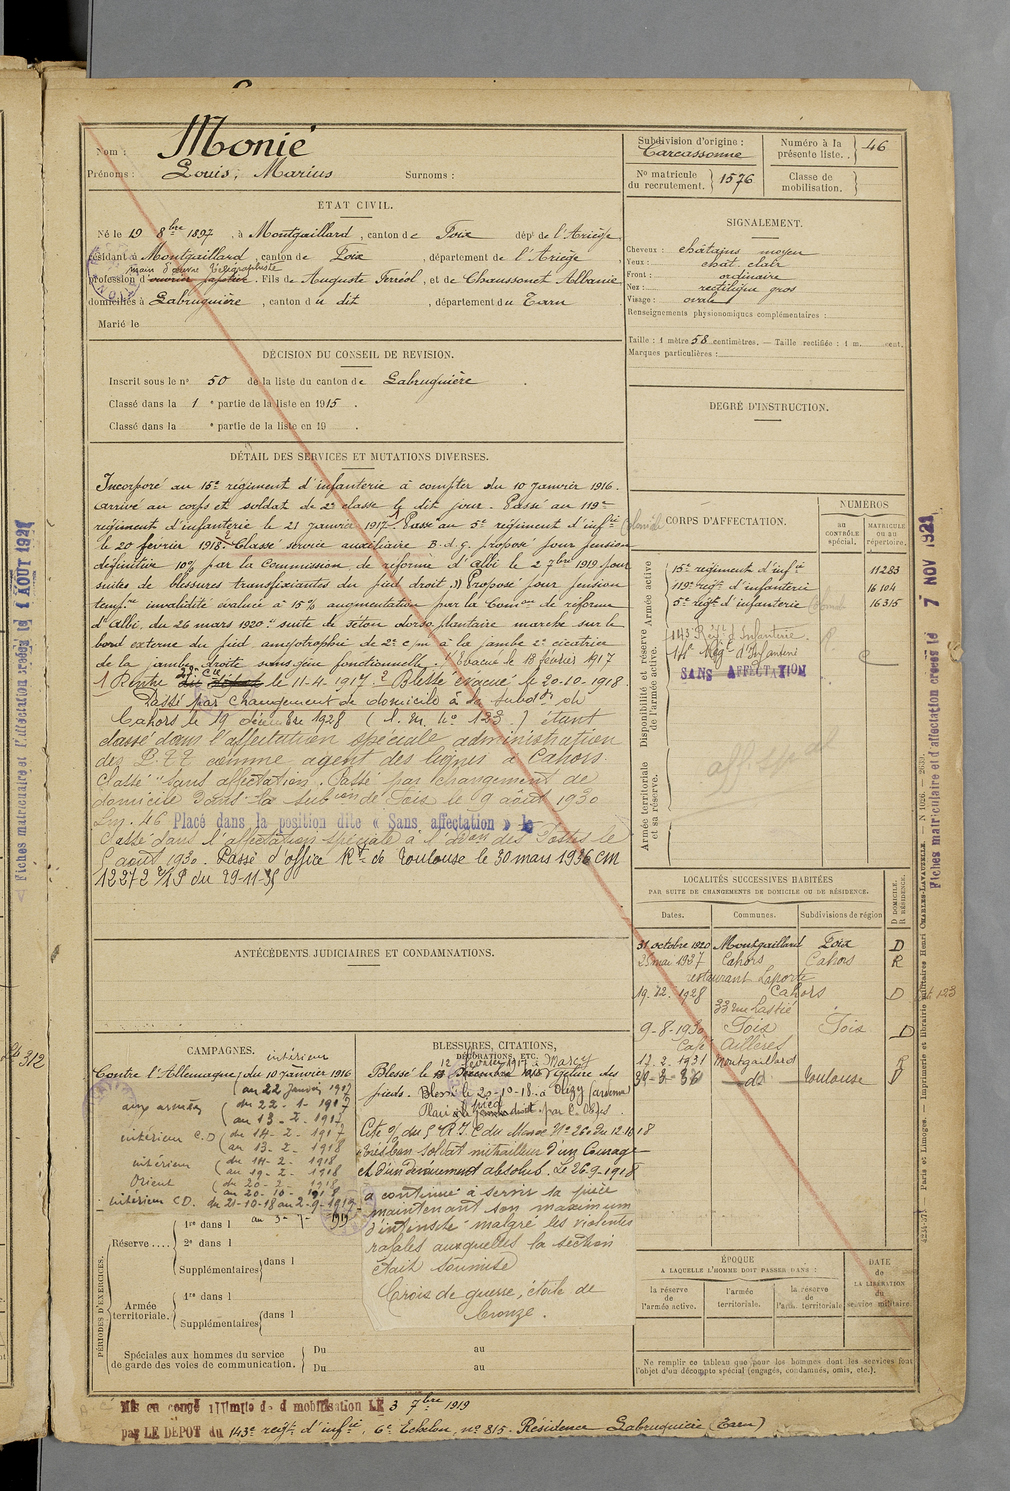 Nom : Monié
Prénoms : Louis, Marius Surnoms :
ÉTAT CIVIL.
Né le 19 8bre 1897, à Montgaillard, canton de Foix dépt de l'Ariège,
résidant à Montgaillard, canton de Foix, département de l'Ariège
main d'œuvre Télégraphiste
profession d'ouvrier papetier. Fils de Auguste Ferréol, et de Chaussonet Albanie
domiciliés à Labruguière, canton du dit, département du Tarn
Marié le
DÉCISION DU CONSEIL DE REVISION.
Inscrit sous le no 50 de la liste du canton de Labruguière.
Classé dans la 1e partie de la liste en 1915.
Classé dans la e partie de la liste en 19 .
DÉTAIL DES SERVICES ET MUTATIONS DIVERSES.
Incorporé au 15e régiment d'infanterie à compter du 10 janvier 1916.
arrivé au corps et soldat de 2e classe le dit jour. Passé au 119e
régiment d'infanterie le 21 janvier 1917. 1 Passé au 5e régiment d'infrie Coloniale
le 20 février 1918. 2 Classé service auxiliaire B.d.g. proposé pour pension
définitive 10% par la Commission de réforme d'Albi le 2 7bre 1919 pour
suites de blessures transfixiantes du pied droit. Proposé pour pension
tempre invalidité évaluée à 15% augmentation par la Comon de réforme
d'Albi, du 26 mars 1920 : suite de séton dorso plantaire marche sur le
bord externe du pied amyotrophie de 2c/m à la jambe 2e cicatrice
de la jambe droite sans gêne fonctionnelle. Evacué le 13 février 1917
1 Rentré le 11-4-1917. 2 Blessé évacué le 20-10-1918.
Passé par changement de domicile à la subdon de
Cahors le 19 décembre 1928 (l. m. no 123) étant
classé dans l'affectation spéciale administration
des P.T.T. comme agent des lignes à Cahors.
Classé "sans affectation". Passé par changement de
domicile dans la subion de Foix le 9 août 1930
Lm. 46 Placé dans la position dite « Sans affectation » le
Passé dans l'affectation spéciale à l'Don des Postes le
août 1930. Passé d'office Rt de Toulouse le 30 mars 1936 CM
12272 2/1P du 29-11-35
ANTÉCÉDENTS JUDICIAIRES ET CONDAMNATIONS.
CAMPAGNES.
intérieur
Contre l'Allemagne; du 10 janvier 1916
(au 22 janvier 1917
aux armées (du 22-1-1917
(au 13-2-1917
intérieur C.D (du 14-2-1917
(au 13-2-1918
intérieur (du 14-2-1918
(au 19-2-1918
Orient (du 20-2-1918
(au 20-10-1918
intérieur CD. du 21-10-18 au 2-9-1919
PÉRIODES D'EXERCICES.
Réserve.... 1re dans l
2e dans l
Supplémentaires dans l
Armée territoriale. 1re dans l
Supplémentaires dans l
Spéciales aux hommes du service
de garde des voies de communication. Du au
Du au
BLESSURES, CITATIONS,
DÉCORATIONS, ETC.
12 février 1917 à Marcy
Blessé le Gelure des
pieds. Blessé le 20-10-18. à Olizy (ardennes)
Plaie pied droit par E. Obus.
Cité o/ du 5e R.I.C du Maroc No 26 du 12.10.18
"très bon soldat mitrailleur d'un Courage
et d'un dévouement absolus. Le 26-9-1918
a continué à servir sa pièce
maintenant son maximum
d'intensité malgré les violentes
rafales auxquelles la section
était soumise
Croix de guerre, étoile de
bronze.
Subdivision d'origine :
Carcassonne
Numéro à la présente liste.. 46
No matricule du recrutement. 1576
Classe de mobilisation.
SIGNALEMENT.
Cheveux : châtains moyen
Yeux : chât. clair
Front : ordinaire
Nez : rectiligne gros
Visage : ovale
Renseignements physionomiques complémentaires :
Taille : 1 mètre 58 centimètres. — Taille rectifiée : 1 m. cent.
Marques particulières :
DEGRÉ D'INSTRUCTION.
CORPS D'AFFECTATION.
NUMÉROS
au CONTRÔLE spécial.
MATRICULE ou au répertoire.
Armée active
15e régiment d'infie 11283
119e régt d'infanterie 16104
5e régt d'infanterie Coloniale 16315
Disponibilité et réserve de l'armée active.
143 Régt d'Infanterie.
14e Régt d'Infanterie
SANS AFFECTATION
aff. spal
Armée territoriale et sa réserve.
LOCALITÉS SUCCESSIVES HABITÉES
PAR SUITE DE CHANGEMENTS DE DOMICILE OU DE RÉSIDENCE.
Dates. Communes. Subdivisions de région D DOMICILE. R RÉSIDENCE.
31 octobre 1920 Montgaillard Foix D
25 mai 1927 Cahors Cahors R
restaurant Laporte
19.12.1928 Cahors D
33 rue Lastié
9-8-1930 Foix Foix D
12.2.1931 Montgaillard R
30-3-36 do Toulouse D
ÉPOQUE
A LAQUELLE L'HOMME DOIT PASSER DANS :
la réserve de l'armée active.
l'armée territoriale.
la réserve de l'arm. territoriale
DATE de LA LIBÉRATION du service militaire.
Ne remplir ce tableau que pour les hommes dont les services font
l'objet d'un décompte spécial (engagés, condamnés, omis, etc.).
Mis en congé illimité de démobilisation LE 3 7bre 1919
par LE DÉPOT du 143e régt d'infie, 6e Echelon, no 815. Résidence Labruguière (Tarn)
Fiches matriculaire et d'affectation créées le 7 NOV 1921
Fiches matriculaire et d'affectation créées le 1 AOUT 192
Paris et Limoges. — Imprimerie et librairie militaires Henri CHARLES-LAVAUZELLE.
312